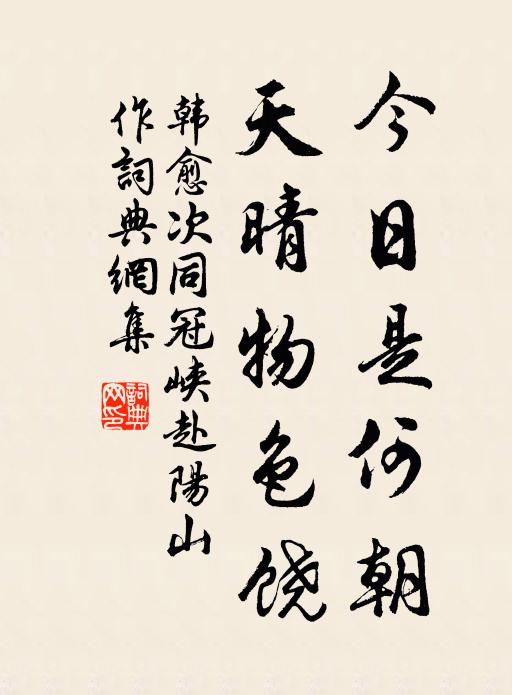 今日是何朝
天晴物色饶
韩愈次同冠峡赴陽山
作詞典網集
詞典网印